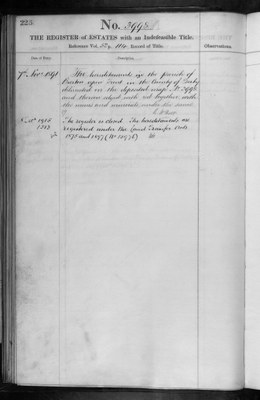 225
No. 3998
THE REGISTER of ESTATES with an Indefeasible Title.
Reference Vol. Record of Title.
Observations.
Date of Entry.
Description.
7th Novr 1898
The hereditaments in the parish of
upon Trent in the County of Derby
delineated on the deposited map No. 3998
and thereon edged with red together with
the mines and minerals under the same
The register is closed. The hereditaments are
registered under the Land Transfer Acts
1875 and 1897